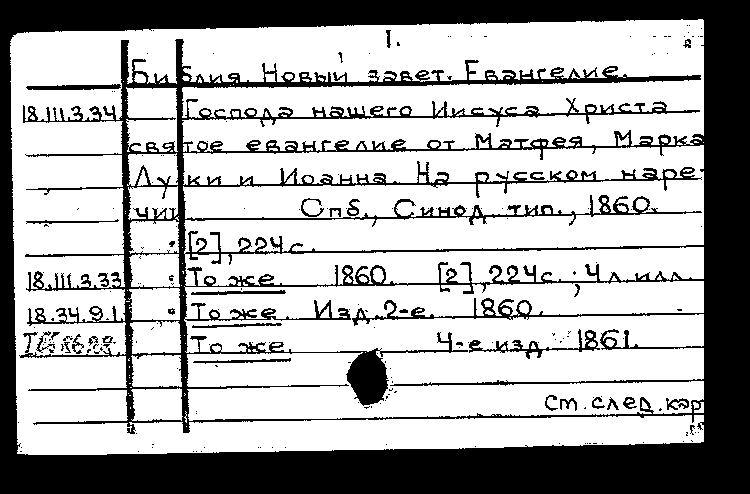 1.
Библия. Новый завет. Евангелие.
18.III.3.34. Господа нашего Иисуса Христа
святое евангелие от Матфея, Марка
Луки и Иоанна. На русском наре-
чии Спб., Синод. тип., 1860.
[2], 224 с.
18.III.3.33 То же. 1860. [2], 224 с.; 4 л. илл.
18.34.9.1. То же. Изд. 2-е. 1860.
То же. 4-е изд. 1861.
См. след. кар